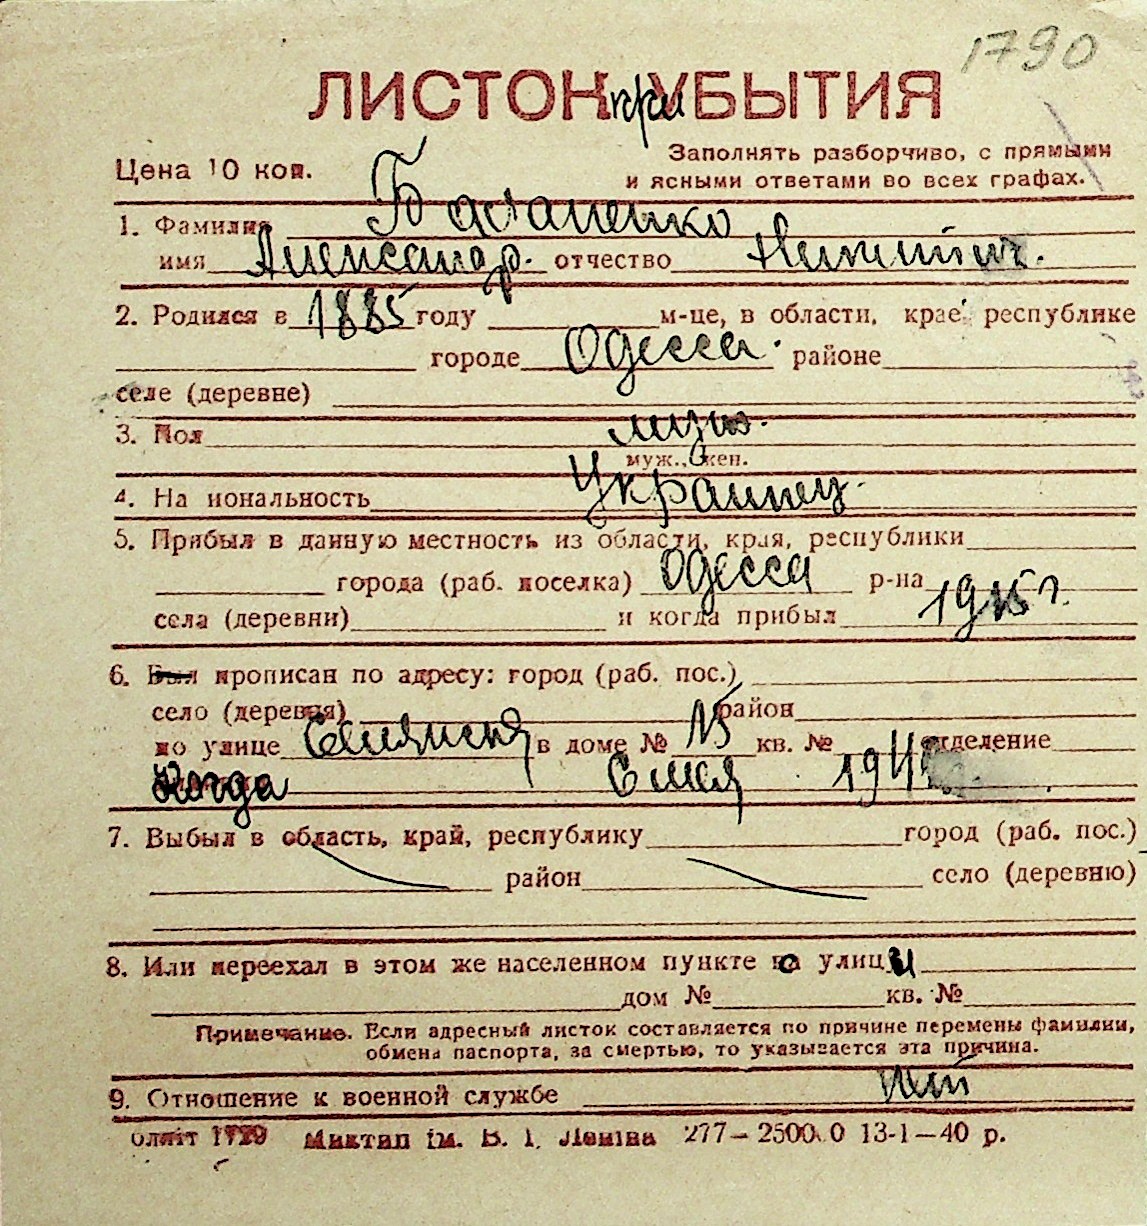 1790
ЛИСТОК при УБЫТИЯ
Цена 10 коп. Заполнять разборчиво, с прямыми
и ясными ответами во всех графах.
1. Фамилия Бастаненко
имя Александр. отчество Никитич.
2. Родился в 1885 году м-це, в области, крае республике
городе Одесса. районе
селе (деревне)
3. Пол муж.
муж., жен.
4. На иональность Украинец.
5. Прибыл в данную местность из области, края, республики
города (раб. поселка) Одесса р-на
села (деревни) и когда прибыл г.
6. Был прописан по адресу: город (раб. пос.)
село (деревня) район
по улице в доме № 15 кв. № отделение
Когда
7. Выбыл в область, край, республику город (раб. пос.)
район село (деревню)
8. Или переехал в этом же населенном пункте по улицы
дом № кв. №
Примечание. Если адресный листок составляется по причине перемены фамилии,
обмена паспорта, за смертью, то указывается эта причина.
9. Отношение к военной службе нет
олліт 1729 Миктип ім. В. І. Леніна 277—2500.0 13-1—40 р.